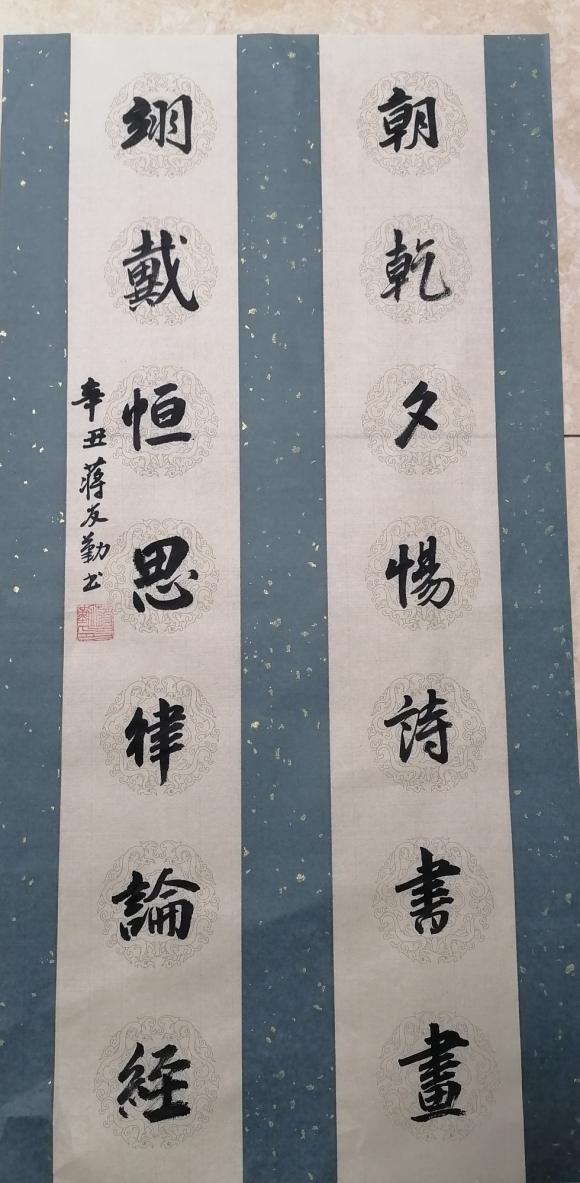 朝乾夕惕詩書畫
翊戴恒思律論經
辛丑蔣友勤书